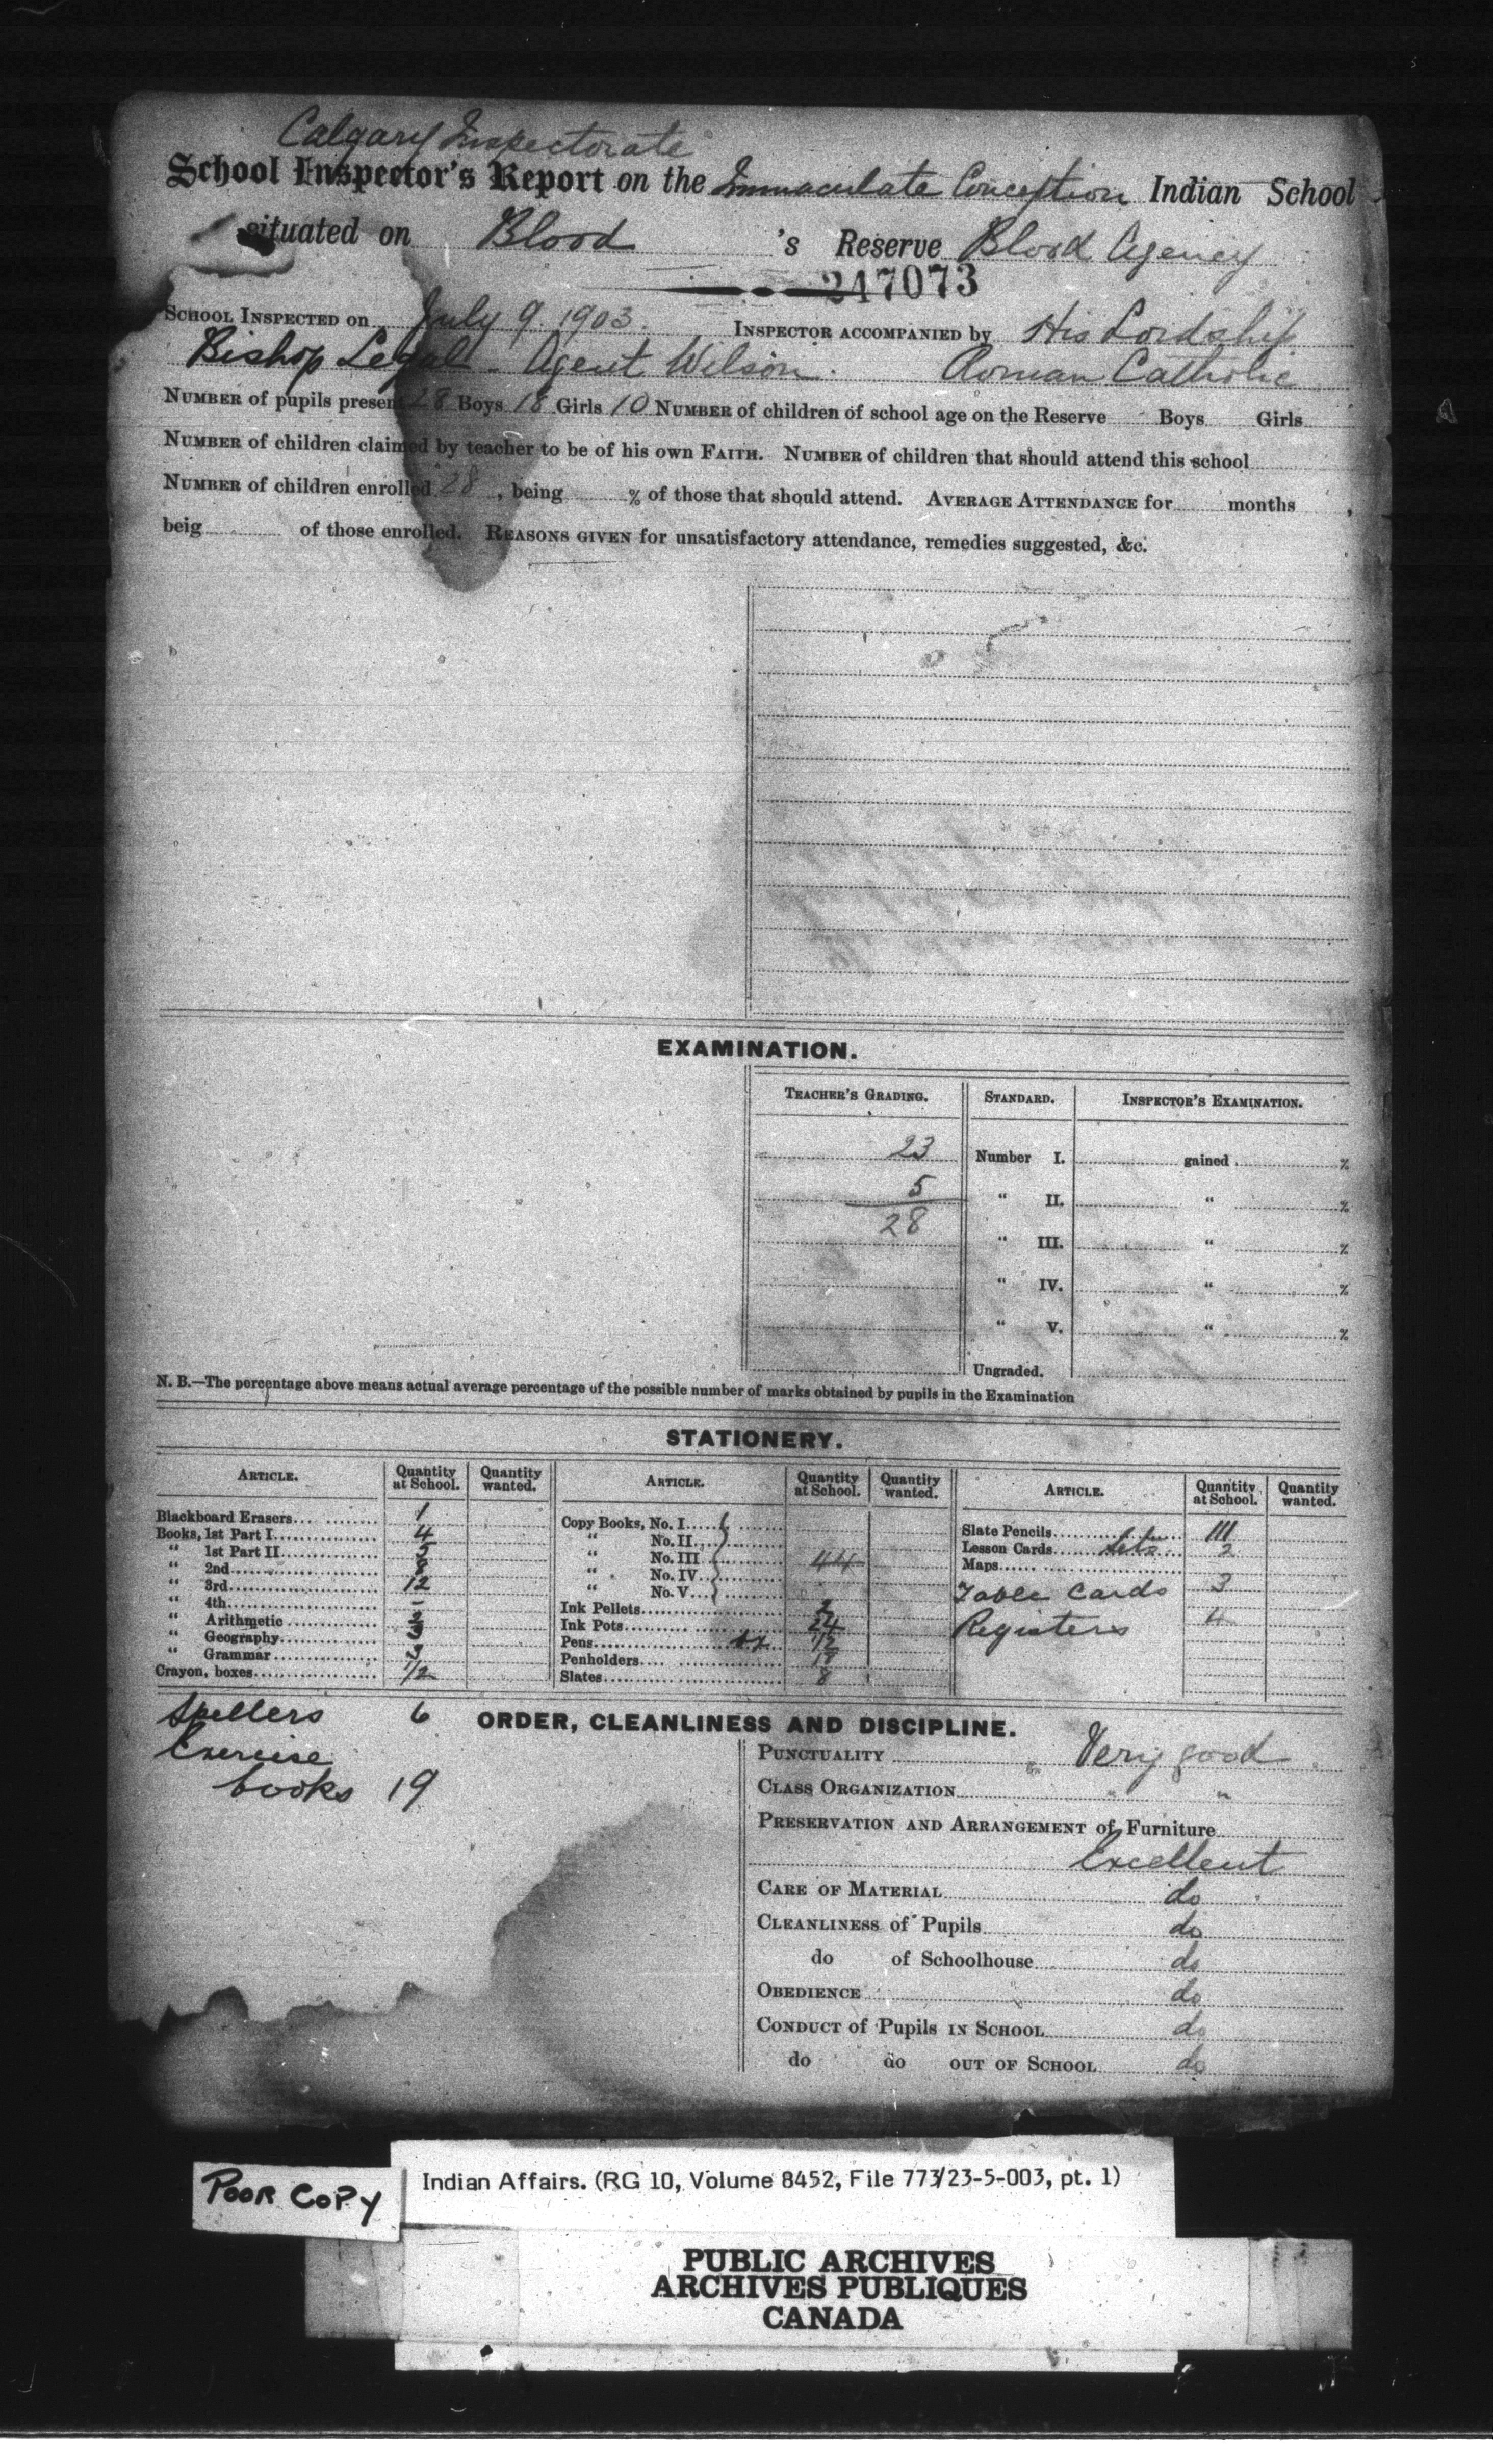 Calgary Inspectorate
School Inspector's Report on the Immaculate Conception Indian School
situated on Blood 's Reserve Blood Agency
247073
SCHOOL INSPECTED on July 9. 1903. INSPECTOR ACCOMPANIED by His Lordship
Bishop Legal - Agent Wilson. Roman Catholic
NUMBER of pupils present 28 Boys 18 Girls 10 NUMBER of children of school age on the Reserve Boys Girls
NUMBER of children claimed by teacher to be of his own FAITH. NUMBER of children that should attend this school
NUMBER of children enrolled 28, being % of those that should attend. AVERAGE ATTENDANCE for months ,
beig of those enrolled. REASONS GIVEN for unsatisfactory attendance, remedies suggested, &c.
EXAMINATION.
TEACHER'S GRADING. STANDARD. INSPECTOR'S EXAMINATION.
23 Number I. gained %
5 " II. " %
28
" III. " %
" IV. " %
" V. " %
Ungraded.
N. B.—The percentage above means actual average percentage of the possible number of marks obtained by pupils in the Examination
STATIONERY.
ARTICLE. Quantity at School. Quantity wanted. ARTICLE. Quantity at School. Quantity wanted. ARTICLE. Quantity at School. Quantity wanted.
Blackboard Erasers 1
Books, 1st Part I 4
" 1st Part II
" 2nd 8
" 3rd 12
" 4th –
" Arithmetic
" Geography 3
" Grammar 3
Crayon, boxes 1/2
Copy Books, No. I
" No. II
" No. III 44
" No. IV
" No. V
Ink Pellets 2
Ink Pots 24
Pens bx 1/2
Penholders
Slates 8
Slate Pencils 111
Lesson Cards Sets 2
Maps
Table Cards 3
Registers 4
Spellers 6
Exercise
books 19
ORDER, CLEANLINESS AND DISCIPLINE.
PUNCTUALITY Very good
CLASS ORGANIZATION " "
PRESERVATION AND ARRANGEMENT of Furniture
Excellent
CARE OF MATERIAL do
CLEANLINESS of Pupils do
do of Schoolhouse do
OBEDIENCE do
CONDUCT of Pupils IN SCHOOL do
do do OUT OF SCHOOL do
POOR COPY
Indian Affairs. (RG 10, Volume 8452, File 773/23-5-003, pt. 1)
PUBLIC ARCHIVES
ARCHIVES PUBLIQUES
CANADA